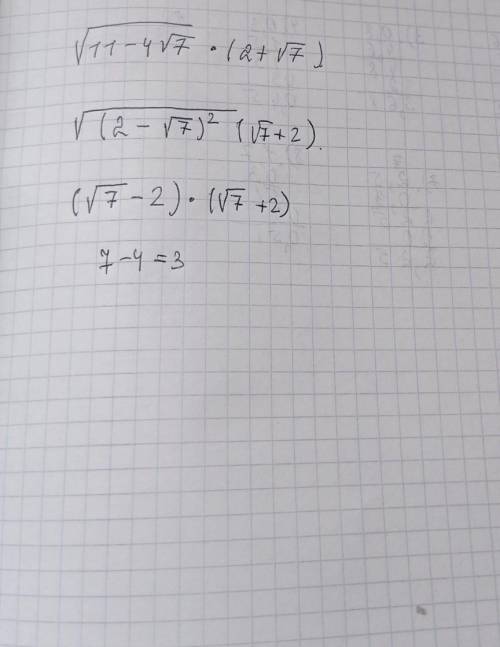 √(11-4√7) · (2+√7)
√((2-√7)²) (√7+2).
(√7-2)·(√7+2)
7-4=3